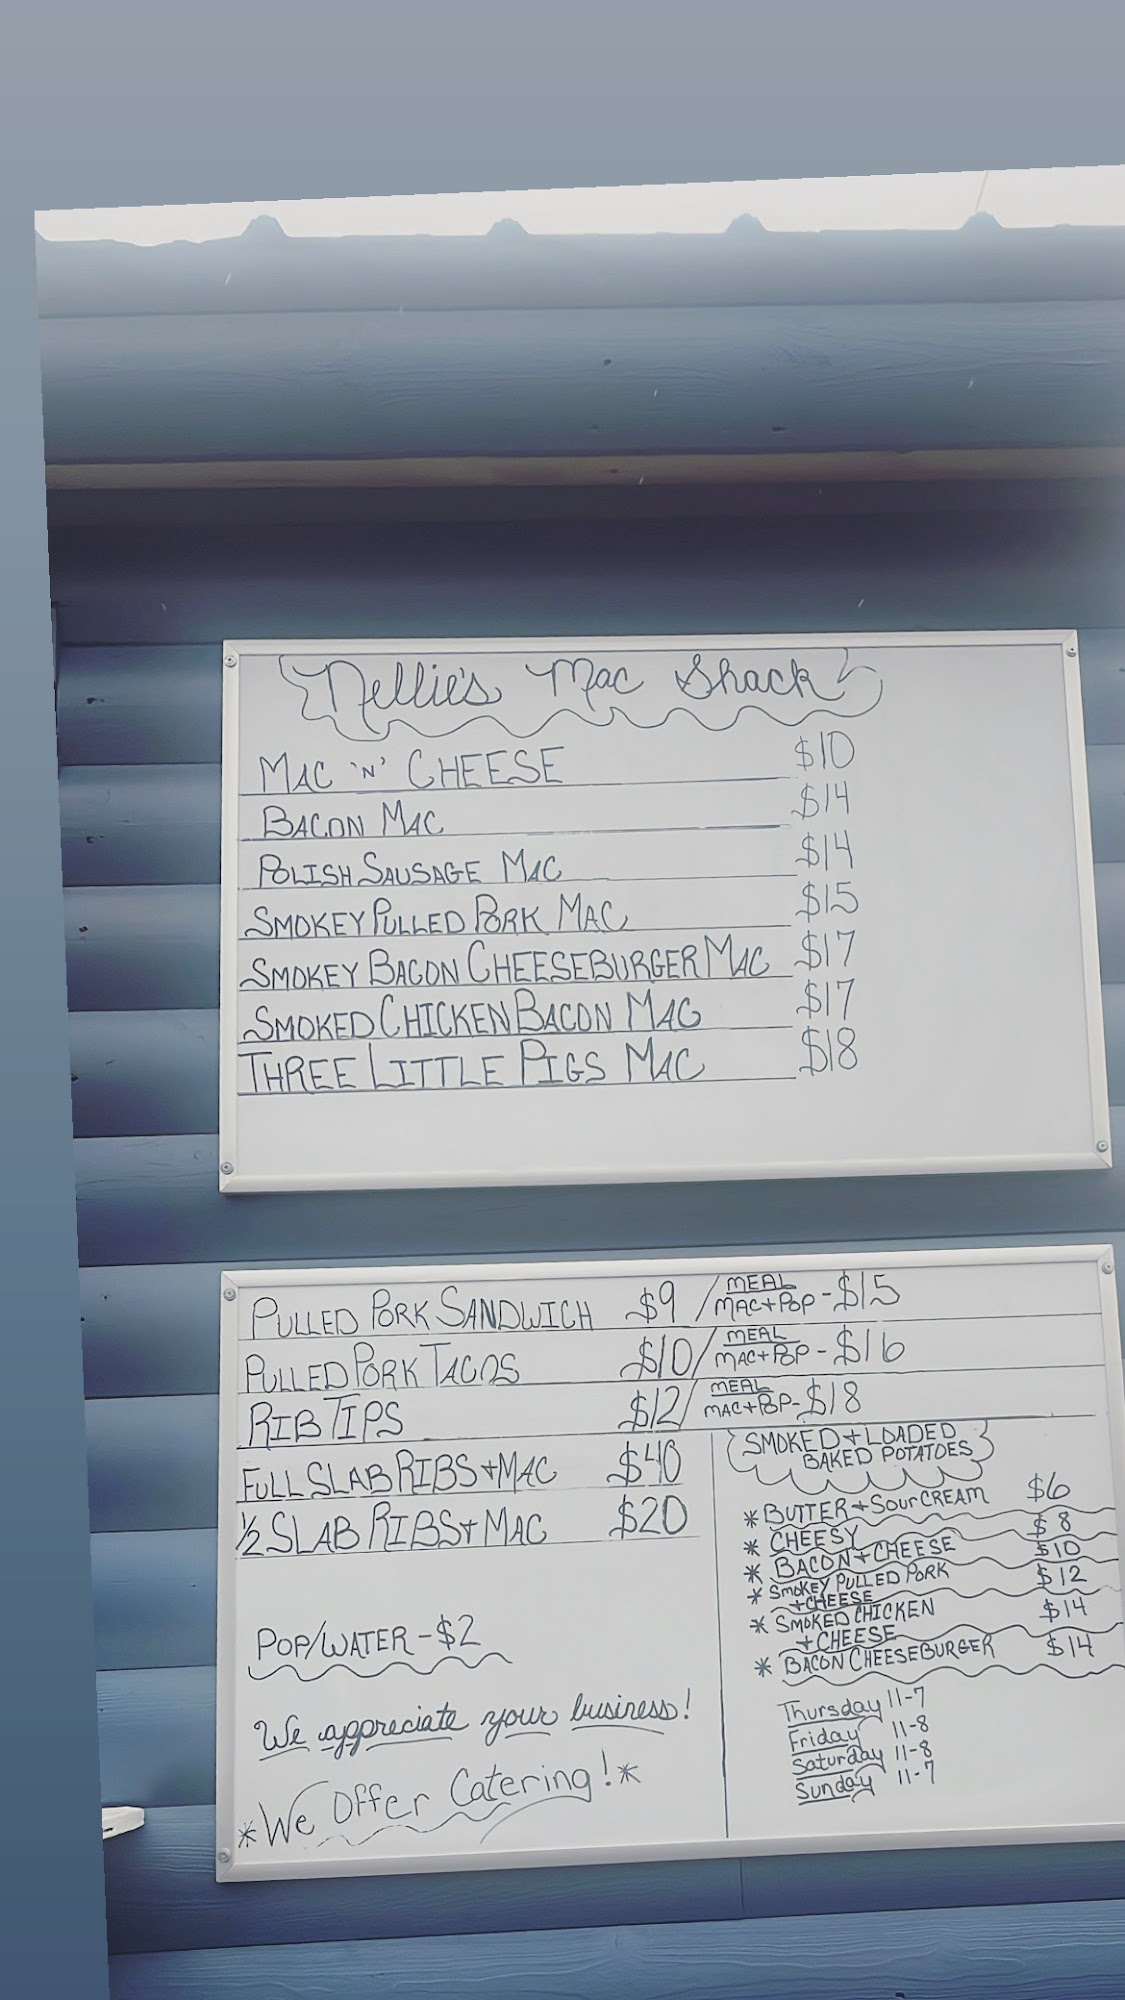 Nellie's Mac Shack
MAC 'N' CHEESE $10
BACON MAC $14
POLISH SAUSAGE MAC $14
SMOKEY PULLED PORK MAC $15
SMOKEY BACON CHEESEBURGER MAC $17
SMOKED CHICKEN BACON MAC $17
THREE LITTLE PIGS MAC $18
PULLED PORK SANDWICH $9 / MEAL MAC+POP - $15
PULLED PORK TACOS $10 / MEAL MAC+POP - $16
RIB TIPS $12 / MEAL MAC+POP - $18
FULL SLAB RIBS + MAC $40
1/2 SLAB RIBS + MAC $20
POP/WATER - $2
We appreciate your business!
*We Offer Catering!*
SMOKED + LOADED
BAKED POTATOES
* BUTTER + SOUR CREAM $6
* CHEESY $8
* BACON + CHEESE $10
* SMOKEY PULLED PORK $12
+ CHEESE
* SMOKED CHICKEN $14
+ CHEESE
* BACON CHEESEBURGER $14
Thursday 11-7
Friday 11-8
Saturday 11-8
Sunday 11-7